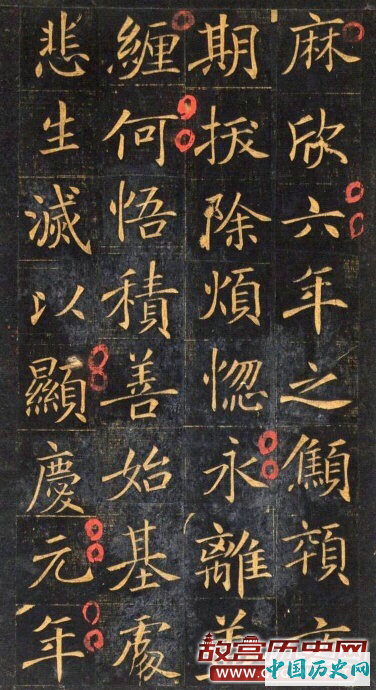 麻欣六年之顦顇
期拔除煩惚永離
纏何悟積善始基處
悲生滅以顯慶元年
故宫历史网
中国历史网